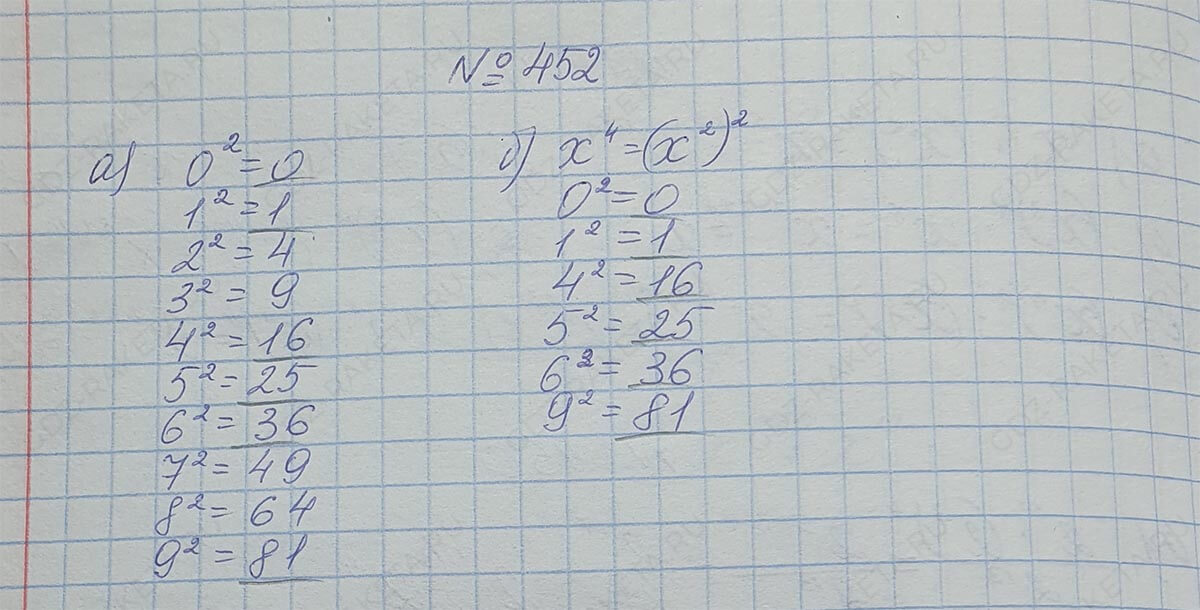 № 452
а) 0² = 0
1² = 1
2² = 4
3² = 9
4² = 16
5² = 25
6² = 36
7² = 49
8² = 64
9² = 81
б) x⁴ = (x²)²
0² = 0
1² = 1
4² = 16
5² = 25
6² = 36
9² = 81